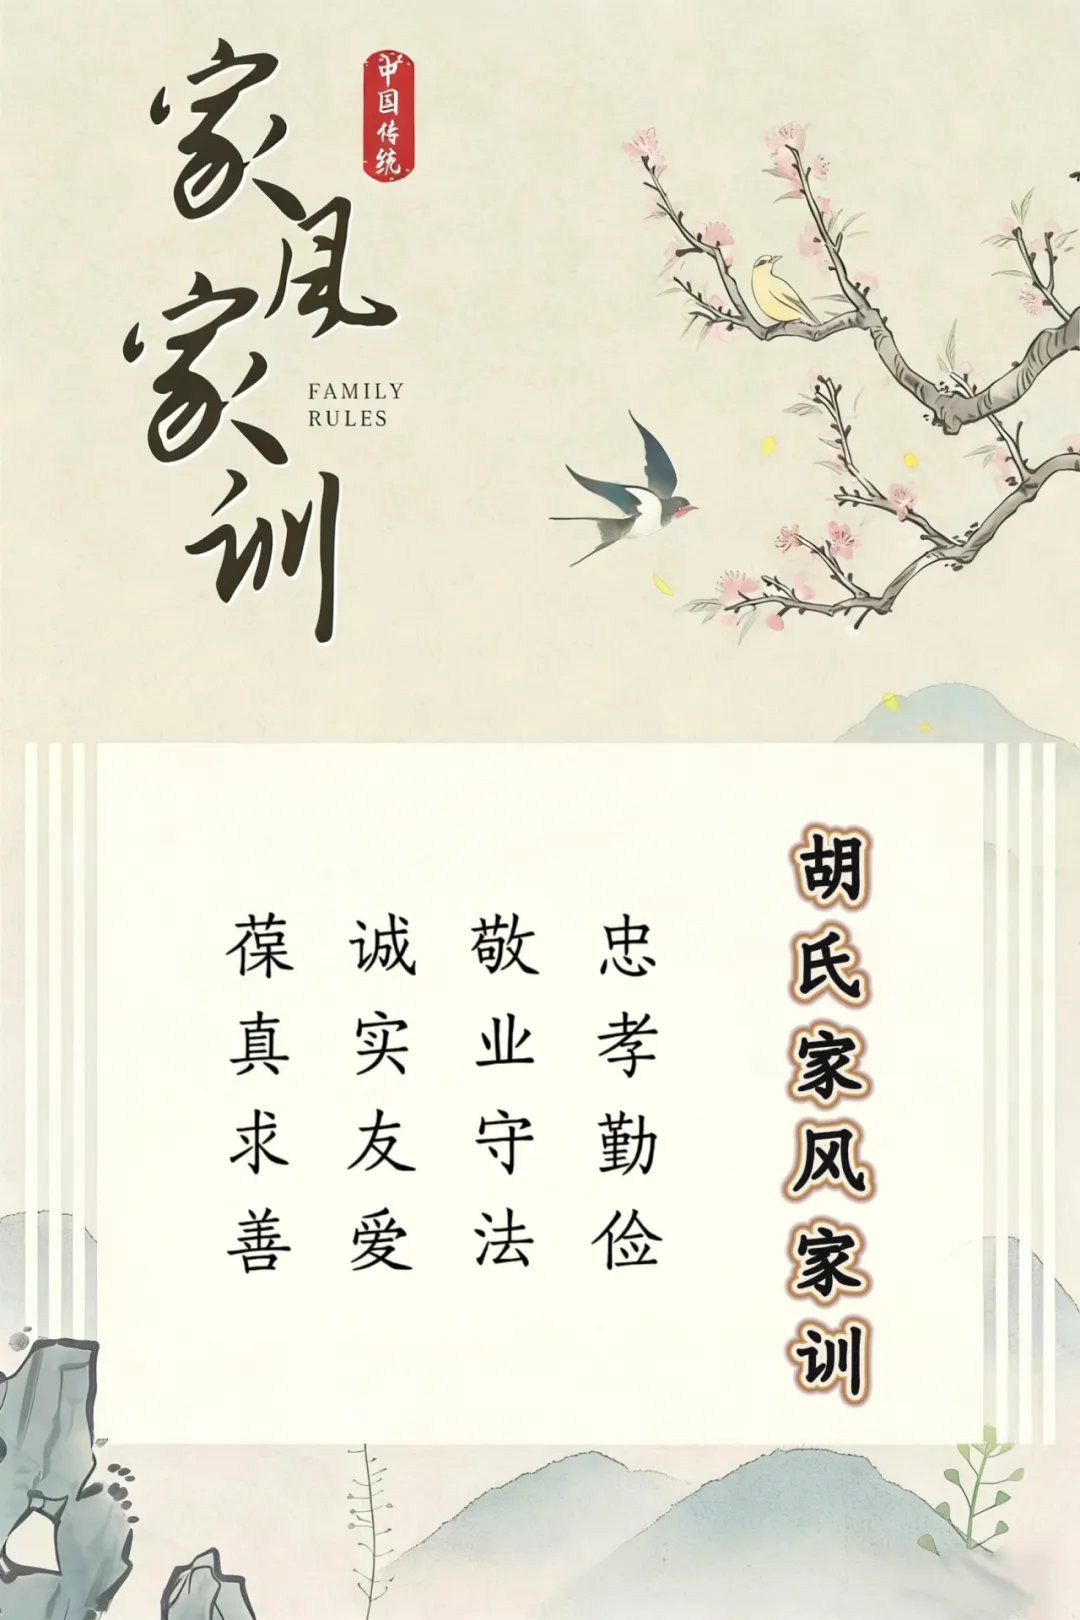 家风家训
中国传统
FAMILY
RULES
胡氏家风家训
忠孝勤俭
敬业守法
诚实友爱
葆真求善